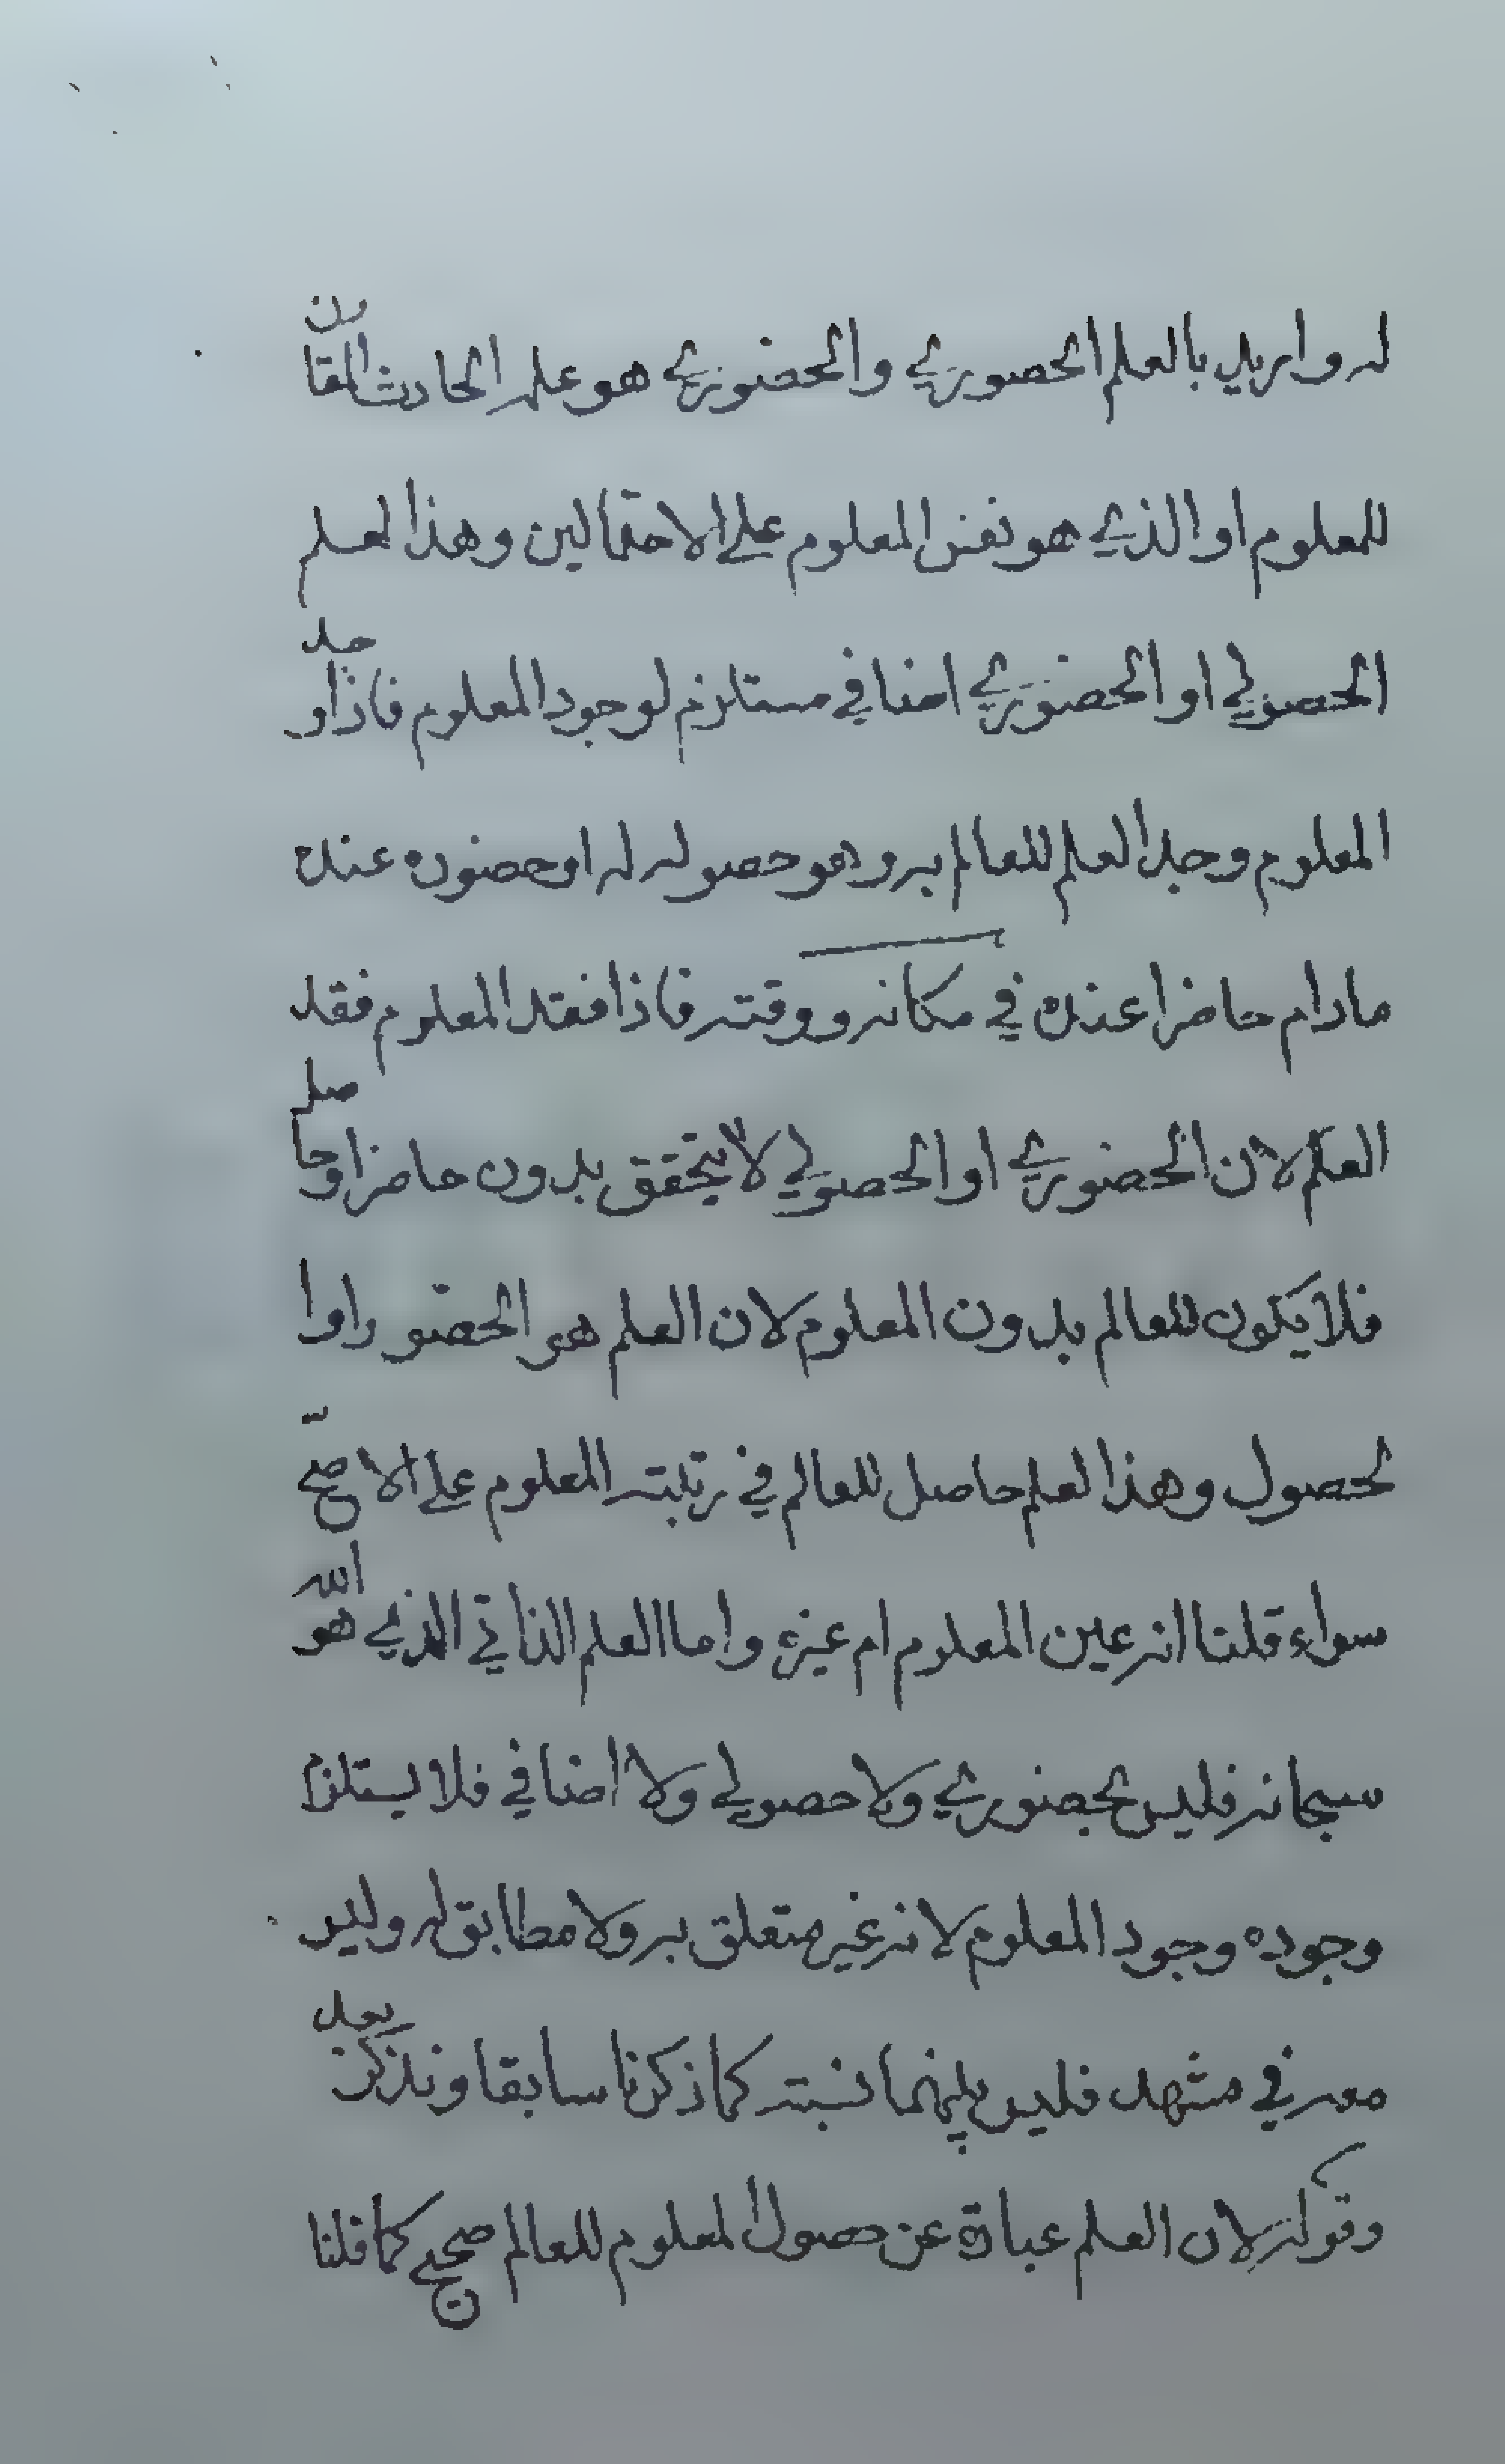 له واريد بالعلم الحصوري والحضوري هو علمه الحادث المقارن
للمعلوم او الذي هو نفس المعلوم على الاحتمالين وهذا لعلم
الحصولي او الحضوري اضافي مستلزم لوجود المعلوم فاذا وجد
المعلوم وجد العلم للعالم به وهو حصوله له او حضوره عنده
مادام حاضرا عنده في مكانه ووقته فاذا فقد المعلوم فقد
العلم لان الحضوري او الحصولي لا يتحقق بدون حاضر او حاصل
فلا يكون للعالم بدون المعلوم لان العلم هو الحضور او ا
لحصول وهذا لعلم حاصل للعالم في رتبته المعلوم على الاصح
سواء قلنا انه عين المعلوم ام غيره واما العلم الذاتي الذي هو الله
سبحانه فليس بحضوري ولا حصولي ولا اضافي فلا يستلزم
وجوده وجود المعلوم لانه غير متعلق به ولا مطابق له وليس
معه في مشهد فليس بينهما نسبته كما ذكرنا سابقا ونذكر بعد
وقوله لان العلم عبارة عن حصول المعلوم للعالم صحيح كما قلنا